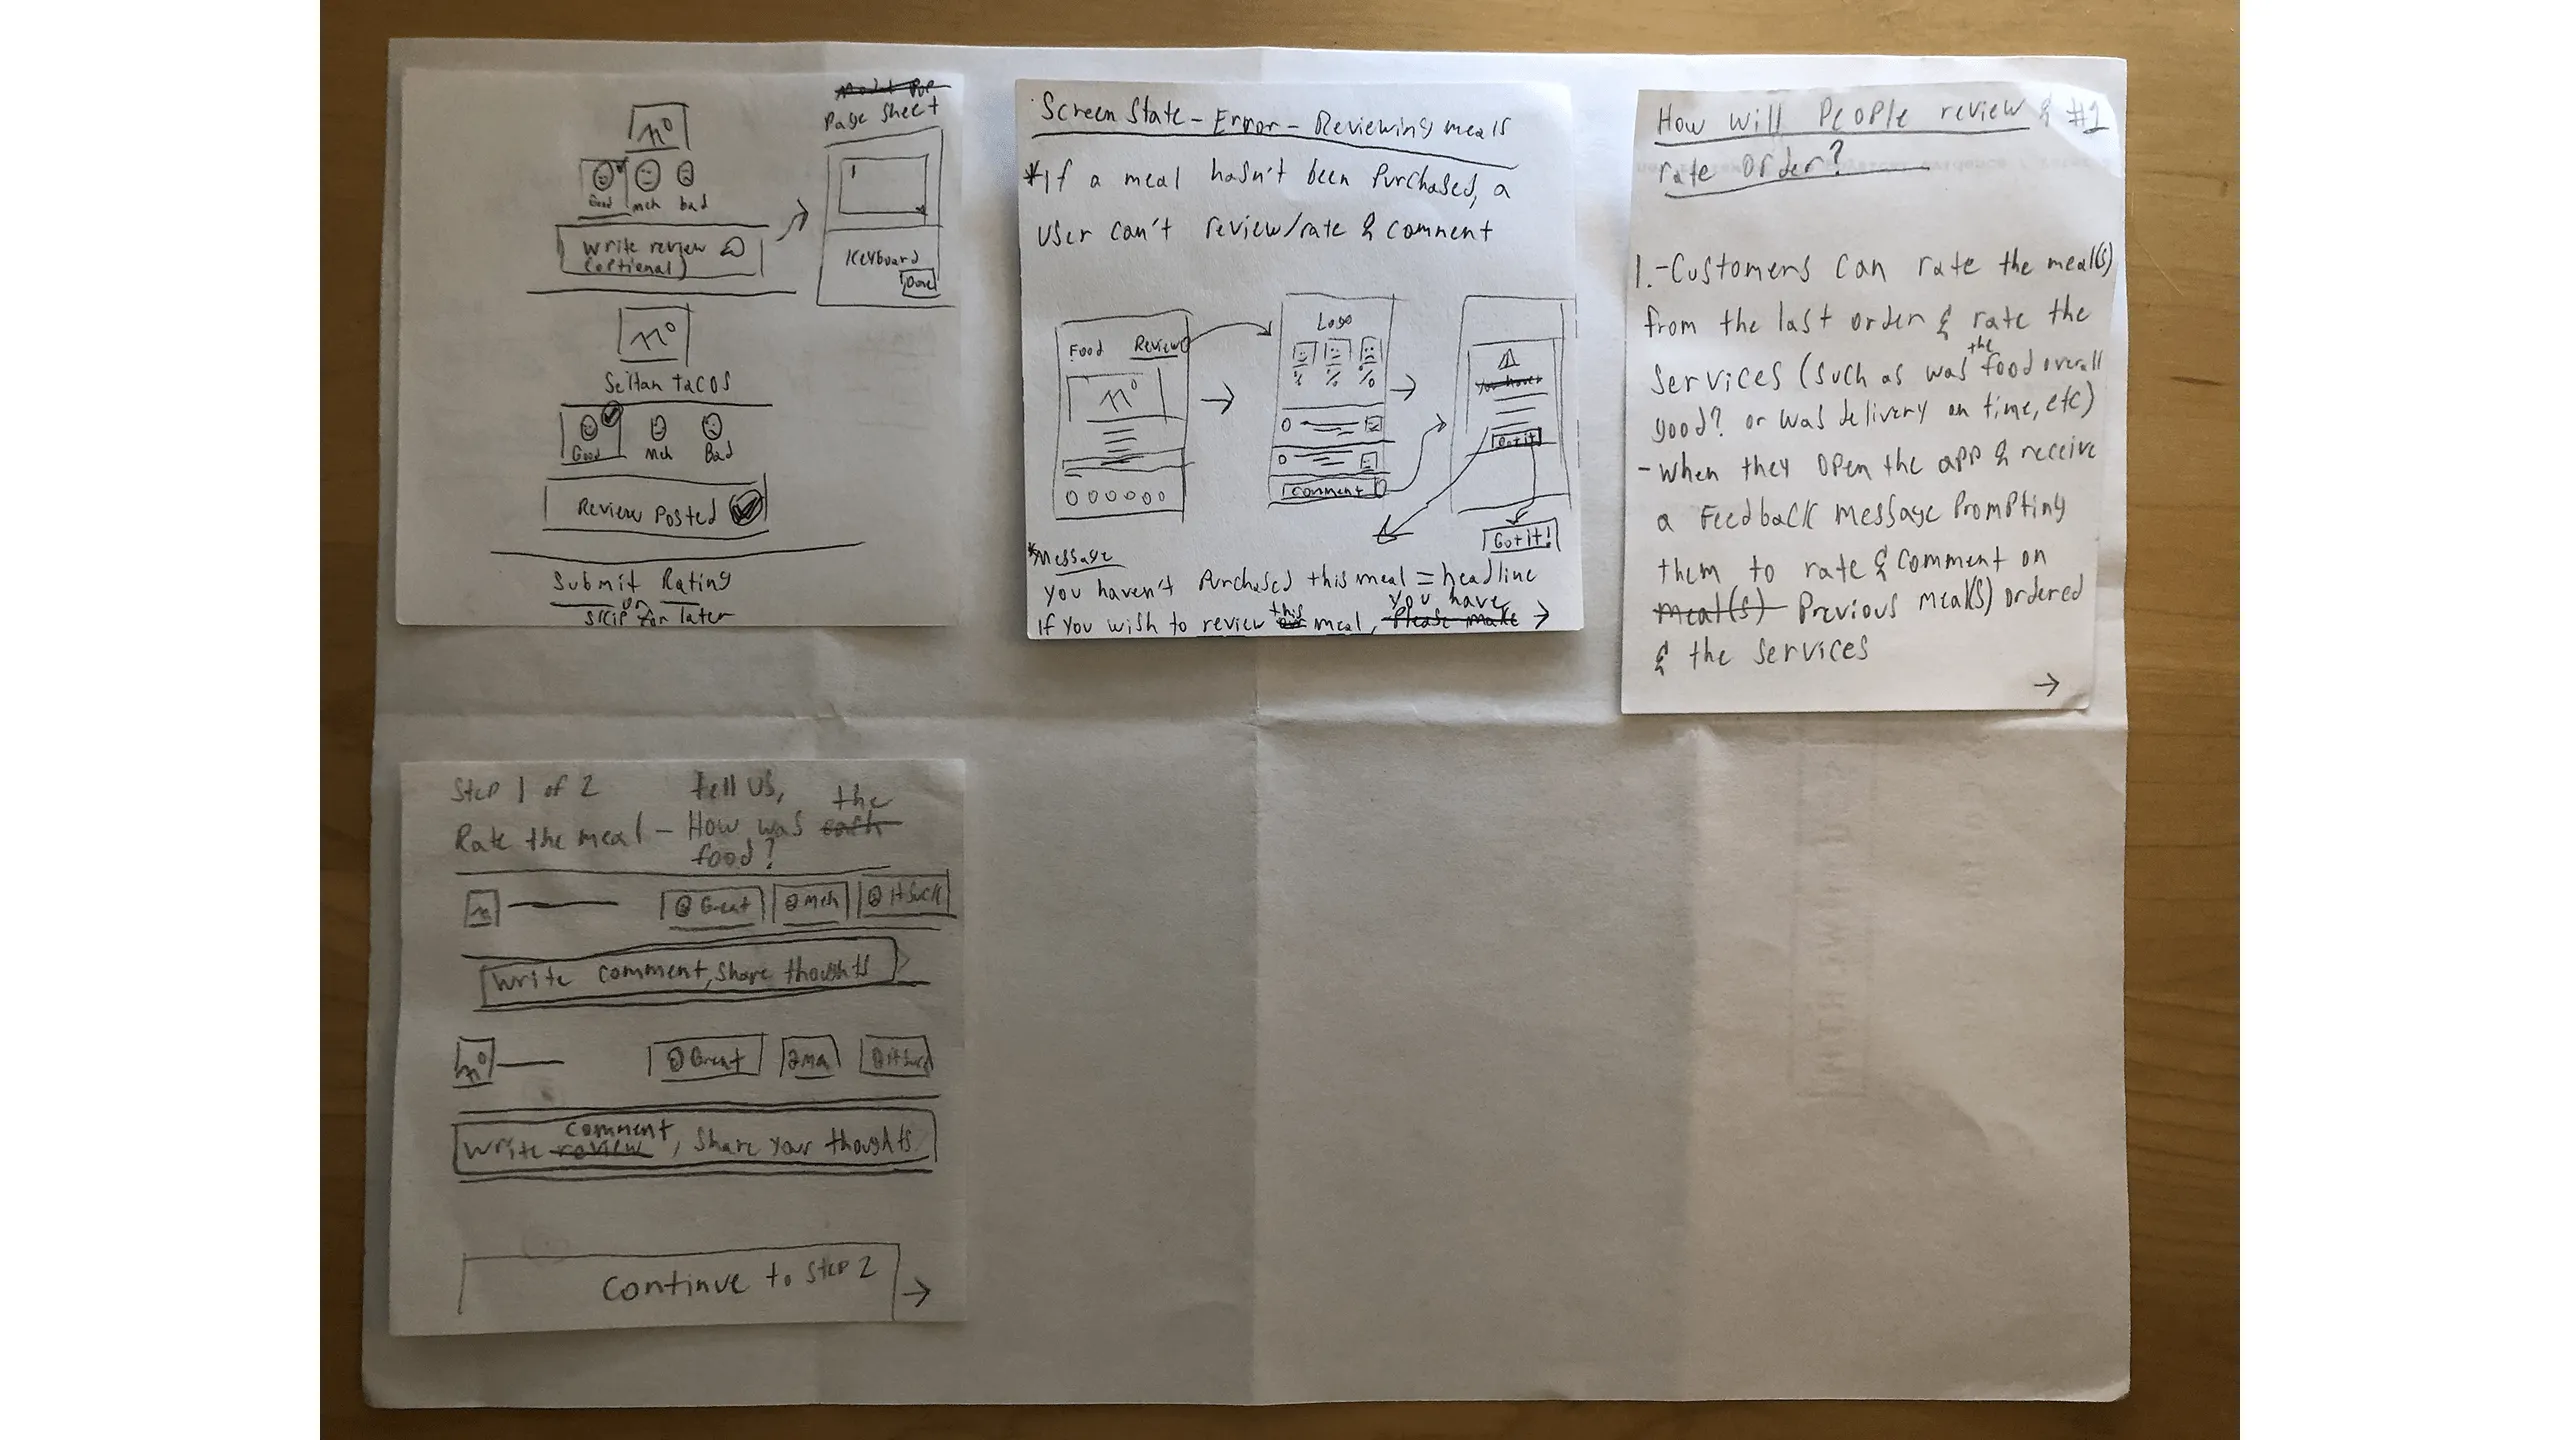 Page Sheet
Good meh bad
Write review
(optional)
Keyboard
Done
Seitan tacos
Good Meh Bad
Review Posted
Submit Rating
or
Skip for later
Screen State - Error - Reviewing meals
*If a meal hasn't been Purchased, a
user can't review/rate & comment
Food Review
Logo
% % %
Comment
Got it
Got it!
*Message
You haven't Purchased this meal = headline
you have
If You wish to review this meal, →
How will People review & #1
rate order?
1.-Customers can rate the meal(s)
from the last order & rate the
services (such as was the food overall
good? or was delivery on time, etc)
- when they open the app & receive
a Feedback message Prompting
them to rate & comment on
meal(s) Previous meal(s) ordered
& the services
→
Step 1 of 2 tell us,
Rate the meal - How was the
food?
Great Meh It Suck
Write comment, share thoughts
Great
Write review comment, share your thoughts
Continue to Step 2 →